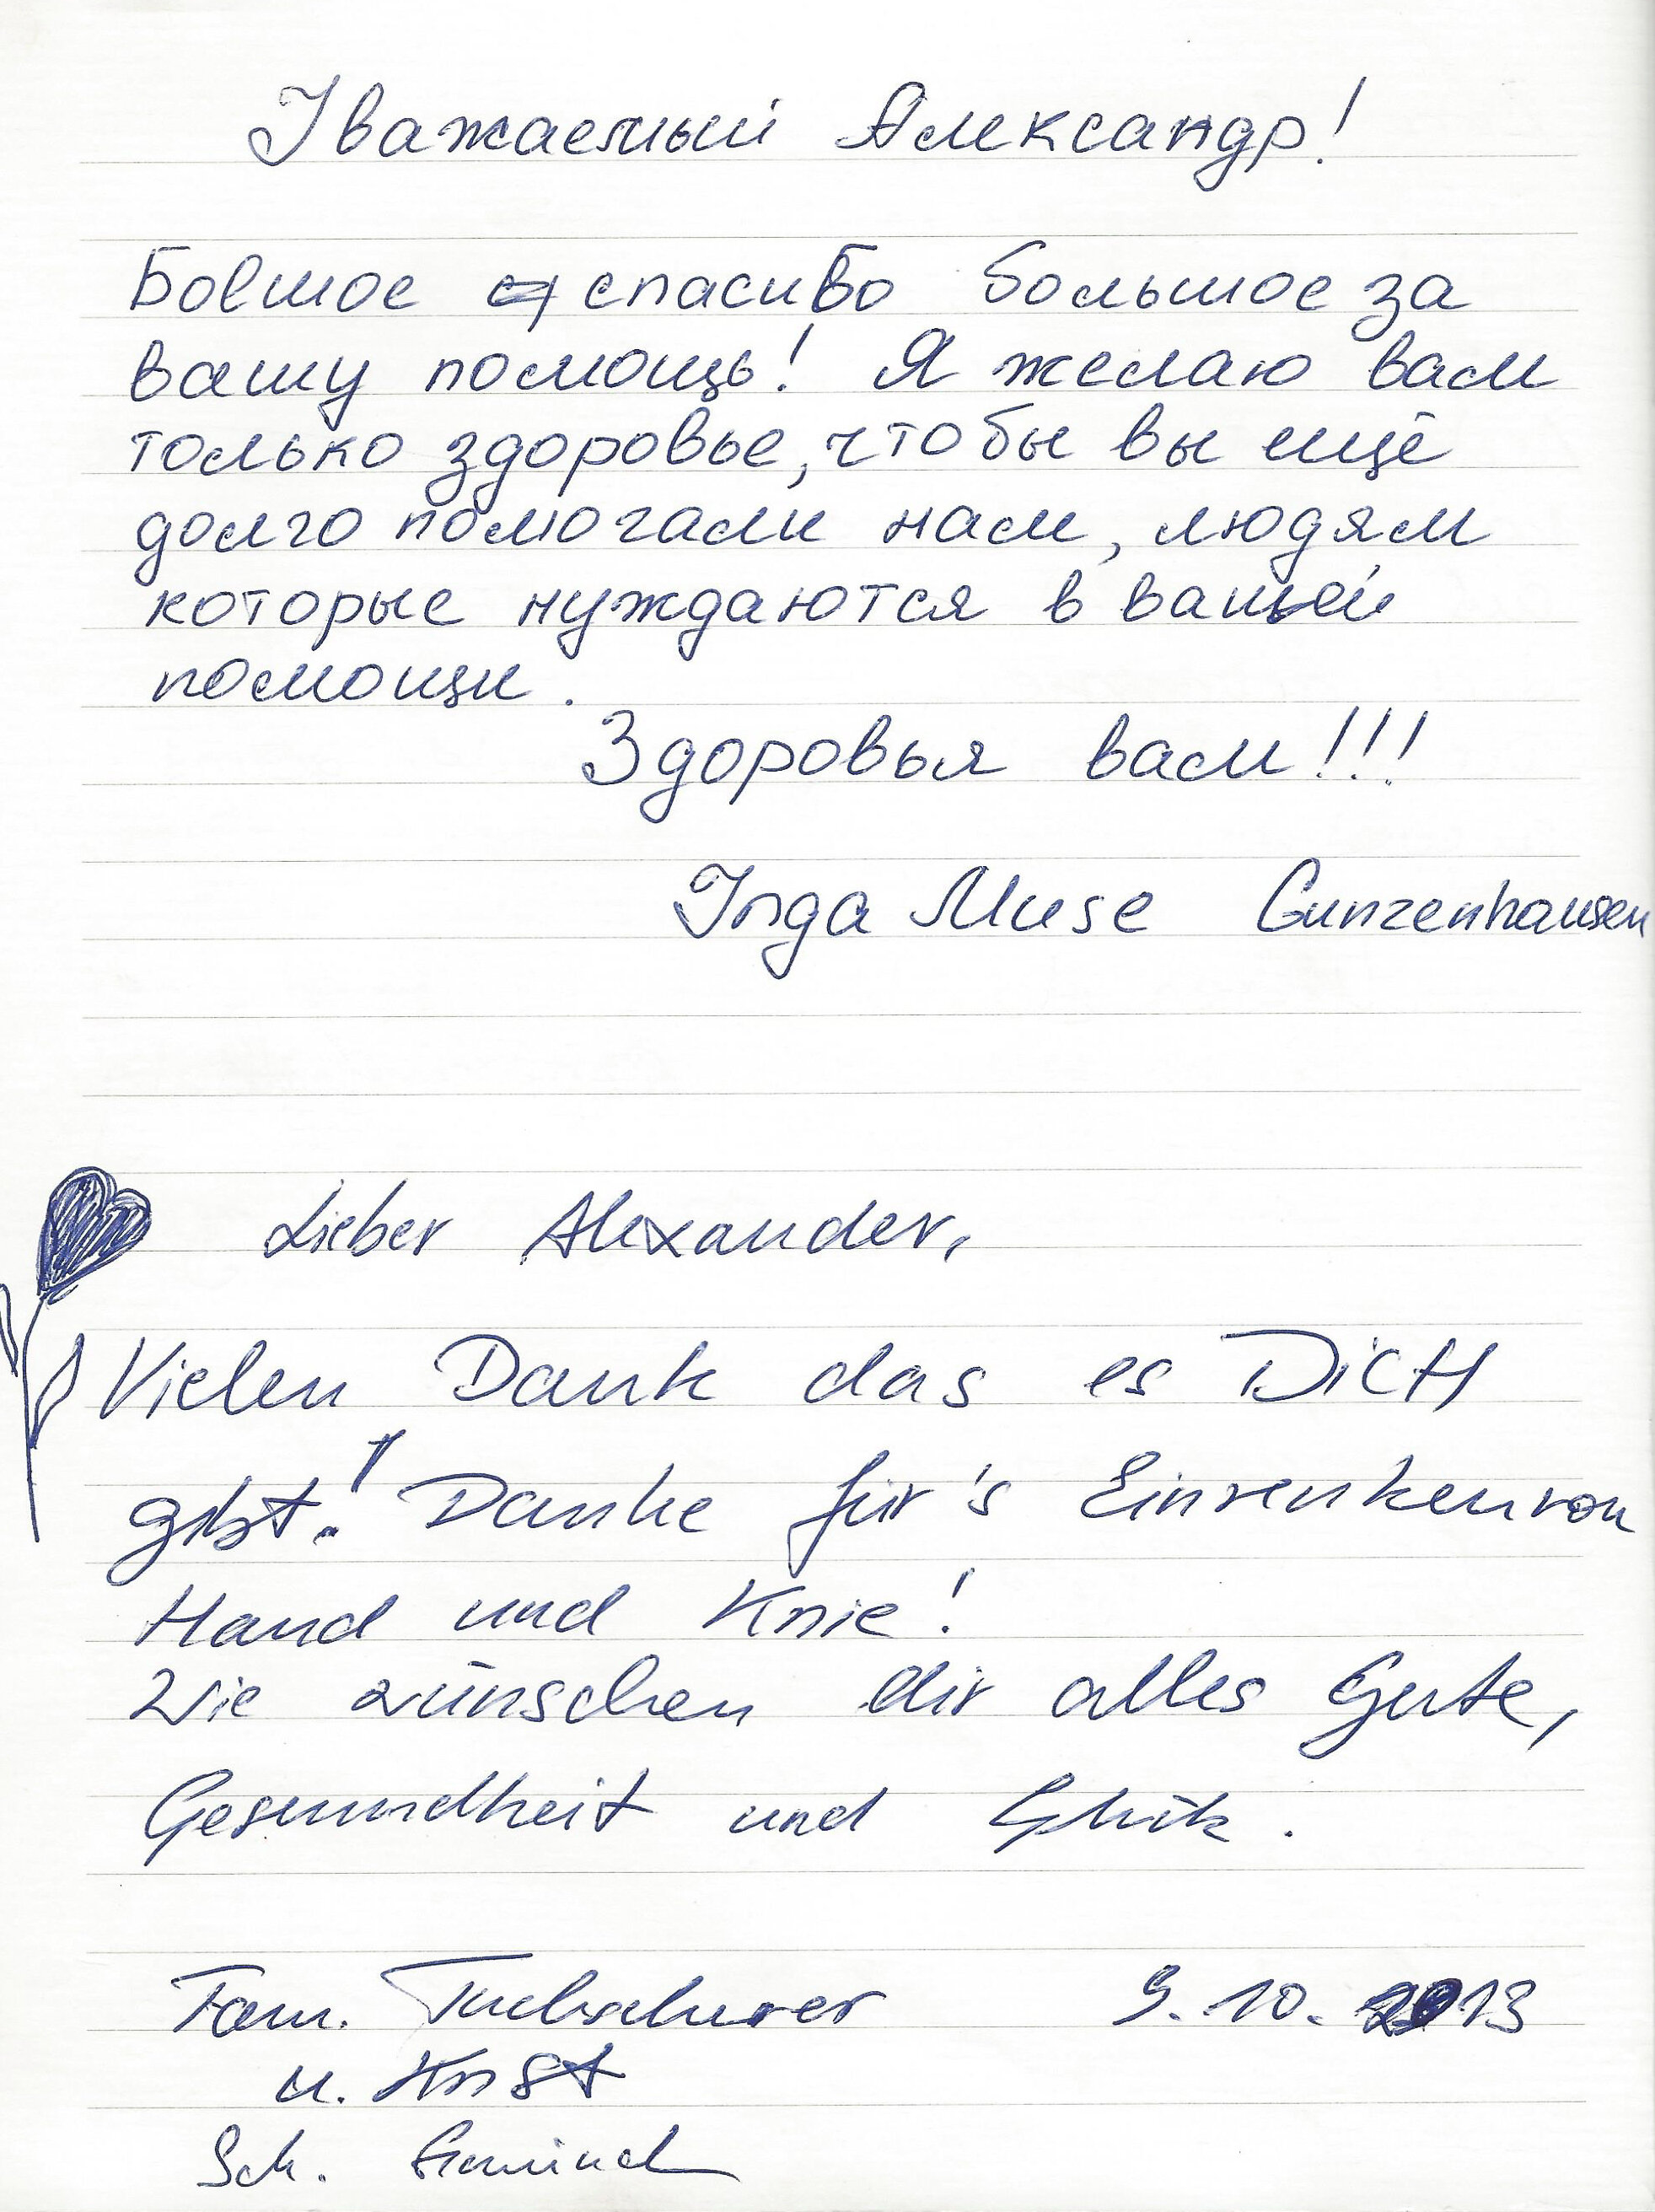 Уважаемый Александр!
Bolшое спасибо большое за
вашу помощь! Я желаю вам
только здоровье, чтобы вы ещё
долго помогали нам, людям
которые нуждаются в вашей
помощи.
Здоровья вам!!!
Inga Muse Gunzenhausen
Lieber Alexander,
Vielen Dank das es DiCH
gibt! Danke für's Einrenken von
Hand und Knie!
Wie wünschen dir alles Gute,
Gesundheit und Glük.
Fam. 9.10.2013
u.
Sch. Gmünd